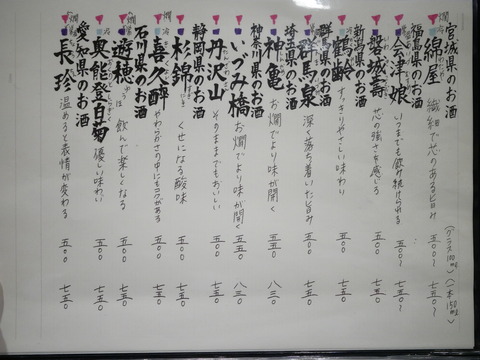 宮城県のお酒
綿屋 繊細で芯のある旨み 五〇〇〜 七五〇〜
(グラス100ml) (一本150ml)
福島県のお酒
会津娘 いつまでも飲み続けられる 五〇〇〜 七五〇〜
磐城壽 芯の強さを感じる 五〇〇 七五〇
新潟県のお酒
鶴齢 すっきりやさしい味わり 五〇〇 七五〇
群馬県のお酒
群馬泉 深く落ち着いた旨み 五〇〇 七五〇
埼玉県のお酒
神亀 お燗でより味が開く 五五〇 八三〇
神奈川県のお酒
いづみ橋 お燗でより味が開く 五五〇 八三〇
丹沢山 そのままでもおいしい 五〇〇 七五〇
静岡県のお酒
杉錦 くせになる酸味 五〇〇 七五〇
喜久醉 やわらかさの中にもコクがある 五〇〇 七五〇
石川県のお酒
遊穂 ゆうほ 飲んで楽しくなる 五〇〇 七五〇
奥能登白菊 優しい味わい 五〇〇 七五〇
愛知県のお酒
長珍 温めると表情が変わる 五〇〇 七五〇